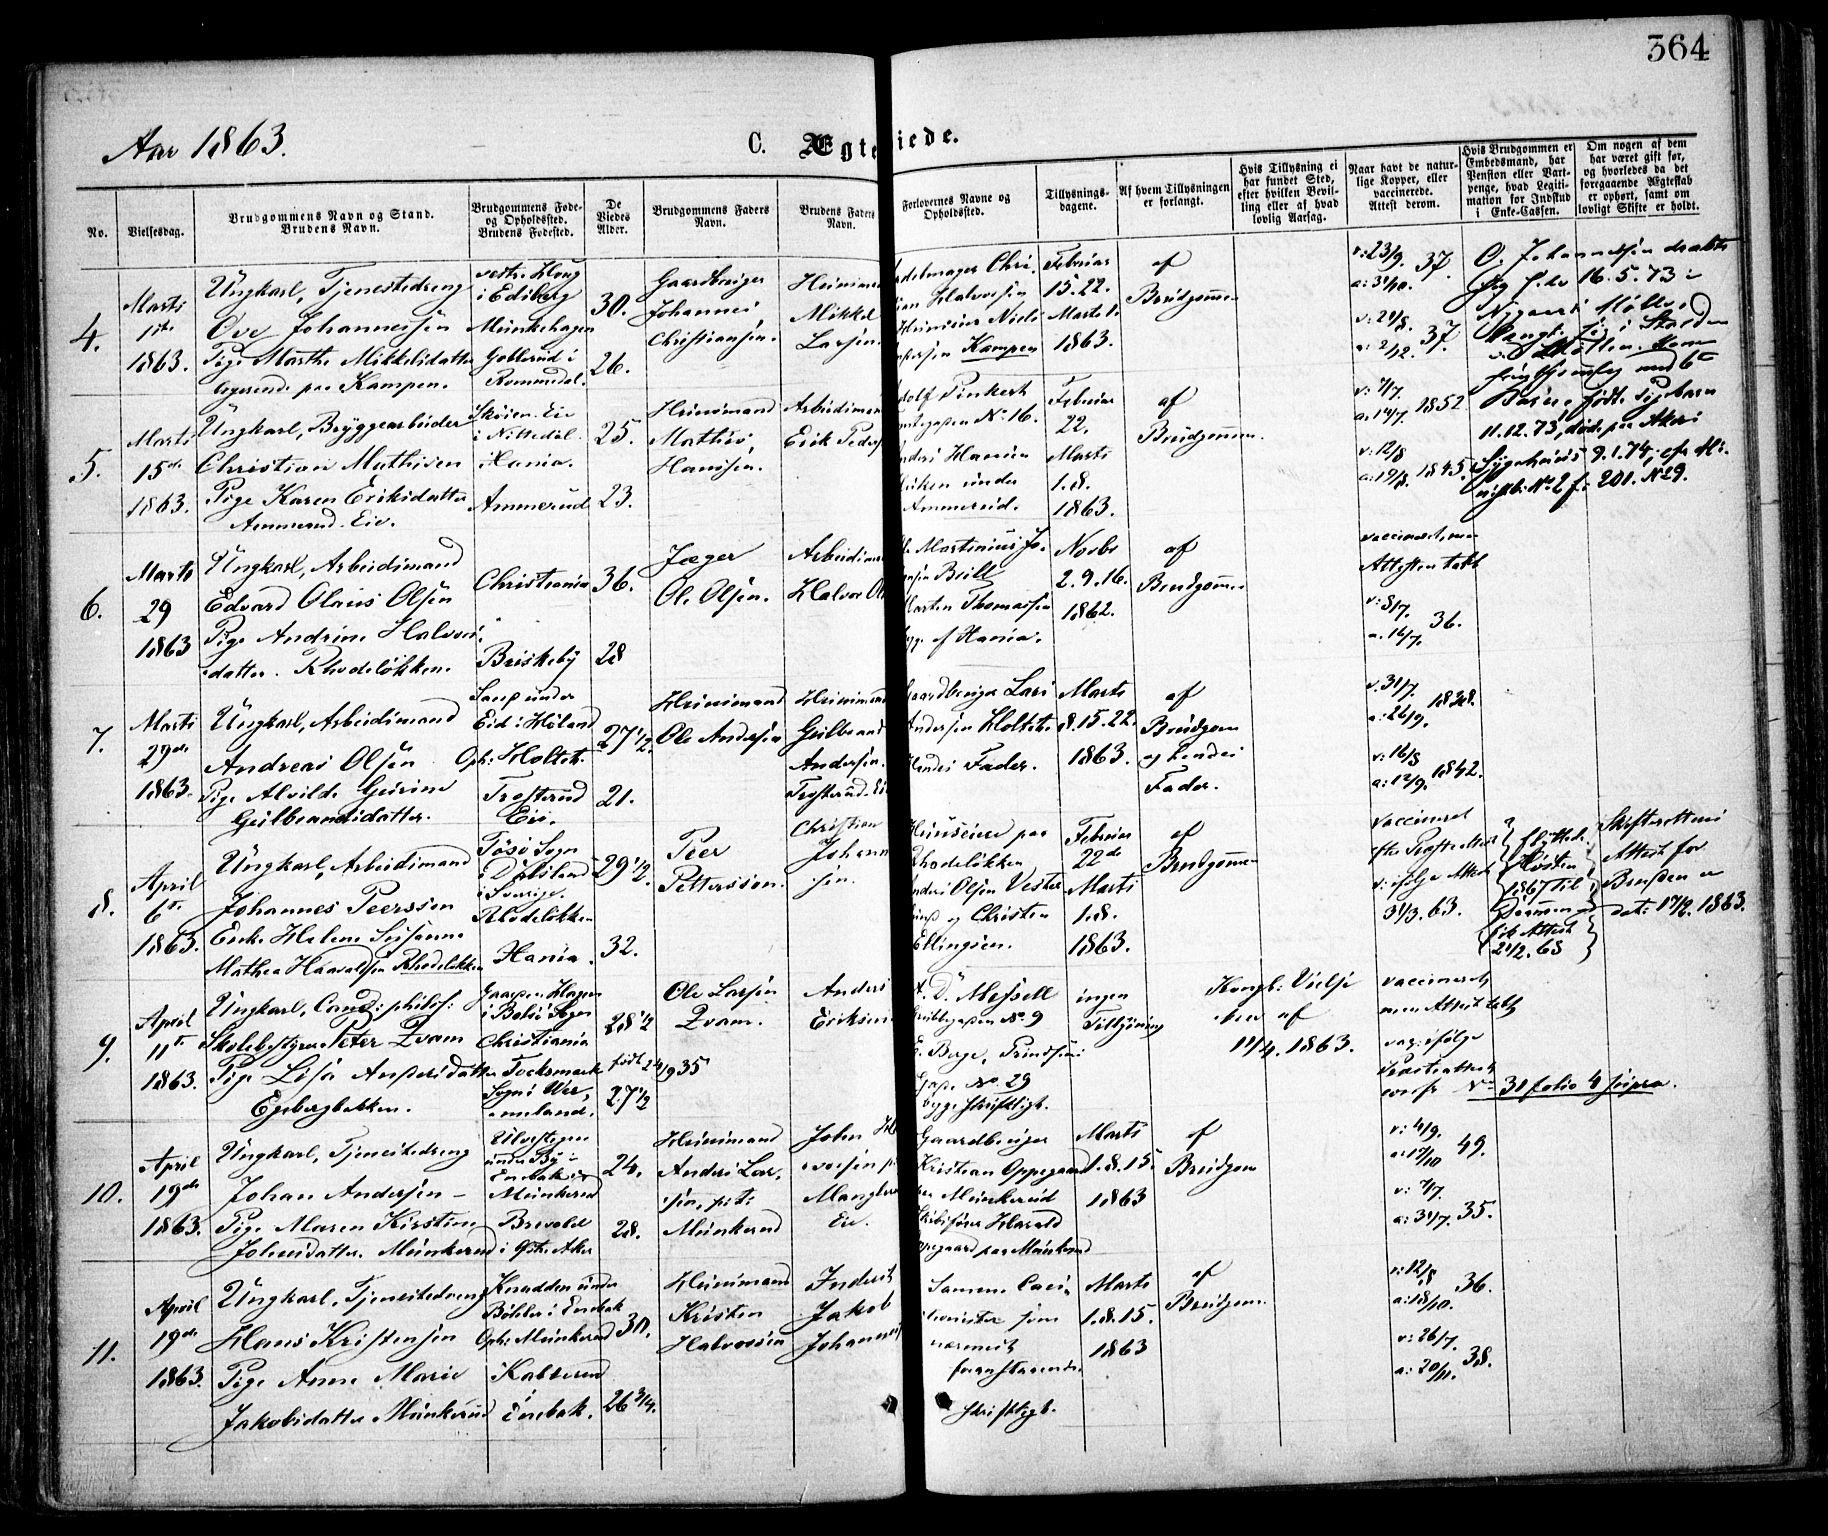 364
Aar 1863.
C. Ægteviede.
No.
Vielsesdag.
Brudgommens Navn og Stand.
Brudens Navn.
Brudgommens Føde-
og Opholdssted.
Brudens Fødested.
De
Viedes
Alder.
Brudgommens Faders
Navn.
Brudens Faders
Navn.
Forlovernes Navne og
Opholdssted.
Tillysnings-
dagene.
Af hvem Tillysningen
er forlangt.
Hvis Tillysning ei
har fundet Sted,
efter hvilken Bevil-
ling eller af hvad
lovlig Aarsag.
Naar havt de natur-
lige Kopper, eller
vaccinerede.
Attest derom.
Hvis Brudgommen er
Embedsmand, har
Pension eller Vart-
penge, hvad Legiti-
mation for Indskud
i Enke-Cassen.
Om nogen af dem
har været gift før,
og hvorledes da det
foregaaende Ægteskab
er ophørt, samt om
lovligt Skifte er holdt.
4.
Marts
1ste
1863.
Ungkarl, Tjenestedreng
Ove Johannessen
Pige Marthe Mikkelsdatter
logerende paa Kampen.
vestre Houg
i Edsberg
Munkehagen
Goblerud i
Rommedal.
30.
26.
Gaardbruger
Johannes
Christiansen.
Huusmand
Mikkel
Larsen.
Halvorsen
Niels
Kampen
Februar
15. 22.
Marts 1.
1863.
af
Brudgommen
v: 23/9. 37.
a: 31/10.
v: 21/8. 37.
a: 2/12.
O. Johannessen dræbte
sig selv 16.5.73 i
5.
Marts
15de
1863.
Ungkarl, Bryggearbeider
Christian Mathisen
Pige Karen Eriksdatter
Ammerud-Eie.
Skøien-Eie
i Nittedal.
Xania.
Ammerud
25.
23.
Huusmand
Mathis
Hansen.
Arbeidsmand
Erik Peders
No. 16.
Anders Hansen
Løken under
Ammerud.
Februar
22.
Marts
1.8.
1863.
af
Brudgommen.
v: 7/7. 1852
a: 14/7.
v: 12/8
a: 19/8. 1845.
11.12.73, døde paa Akers
Sygehuus 9.1.74; cfr Mi-
nistb: No. 2 f: 201. No 29.
6.
Marts
29
1863
Ungkarl, Arbeidsmand
Edvard Olaus Olsen
Pige Andrine Halvors-
datter. Rhodeløkken.
Christiania
Briskeby
36.
28
Jæger
Ole Olsen.
Arbeidsmand
Halvor Ols
Martinius Jo-
hansen Brill
Morten Thomassen
byg. af Xania.
Novbr
2. 9. 16.
1862.
af
Brudgommen
vaccineret, men
Attesten tabt
v: 8/7. 36.
a: 16/7.
7.
Marts
29de
1863.
Ungkarl, Arbeidsmand
Andreas Olsen
Pige Alvilde Gurine
Gulbrandsdatter.
under
Eid i Høland
Oph: Holtet.
Trosterud
Eie.
27 1/2.
21.
Huusmand
Ole Andersen
Huusmand
Gulbrand
Andersen.
Trosterud-Eie
Gaardbruger Lars
Andersen Holtet
Hendes Fader.
Marts
8. 15. 22.
1863.
af
Brudgom
og hendes
Fader.
v: 31/7. 1838.
a: 26/9.
v: 16/8
a: 12/9. 1842.
8.
April
6te
1863.
Ungkarl, Arbeidsmand
Johannes Peerssen
Enke Helene Susanne
Mathea Haavaldsen Rhodeløkken
Tøsø Sogn
i Dalsland
i Sverige.
Rhodeløkken
Xania.
29 1/2.
32.
Peer
Pettersson.
Christian
Johann
sen.
Huuseiere paa
Rhodeløkken
Anders Olsen Vester-
og Christen
Ellingsen.
Februar
22de
Marts
1.8.
1863.
af
Brudgommen
vaccineret
efter Præsteattest
v: ifølge Attest
31/3. 63.
flyttede
Høsten
1867 til
Attest
21/2. 68
Skifterettens
Attest for
Bruden er
dat: 17/2. 1863.
9.
April
11te
1863.
Ungkarl, Cand: philos:
Skolebestyrer Peter Qvam
Pige Lisa Andersdatter
Egebergbakken.
Gaarden Hagen
i Bolsø Sogn
Christiania
Focksmark
Sogn i Wer-
meland.
28 1/2
født 24/9 35
27 1/2
Ole Larsen
Qvam.
Anders
Eriksen
A. D. Messell
Grubbegaden No 9
E. Berge, Prindsens
Gade No. 29
begge skriftligt.
ingen
Tillysning
Kongl: Vielse-
brev af
11/4. 1863.
vaccineret
men Attest tabt
vac: ifølge
Præsteattest
confr No 31 folio 4 supra.
10.
April
19de
1863.
Ungkarl, Tjenestedreng
Johan Andersen -
Pige Maren Kirstine
Johnsdatter. Munkerud
Ulvestegen
under By i
Enebak
Munkerud
Brevald
i Østre Aker
24.
28.
Huusmand
Anders Lar-
sen, pt:
Munkerud
John Hal
vorsen p
Manglerud
Eie.
Gaardbruger
Kristian Oppegaard
paa Munkerud
Kirkesanger Harald
Oppegaard paa Munkerud
Marts
1. 8. 15.
1863
af
Brudgom
v: 4/9. 49.
a: 17/10
v: 7/7.
a: 31/7. 35.
11.
April
19de
1863.
Ungkarl, Tjenestedreng
Hans Kristensen
Pige Anne Marie
Jakobsdatter Munkerud
Knadden under
Bøhler i Enebak
Oph: Munkerud
Kabberud
i Enebak.
30.
26 3/4.
Huusmand
Kristen
Halvorsen
Inderst
Jakob
Johannes
Samme Cavi-
onister som
nærmest
foranstaaende
skriftligt.
Marts
1. 8. 15.
1863
af
Brudgom.
v: 12/8 36.
a: 18/10.
v: 26/7.
a: 20/11. 38.